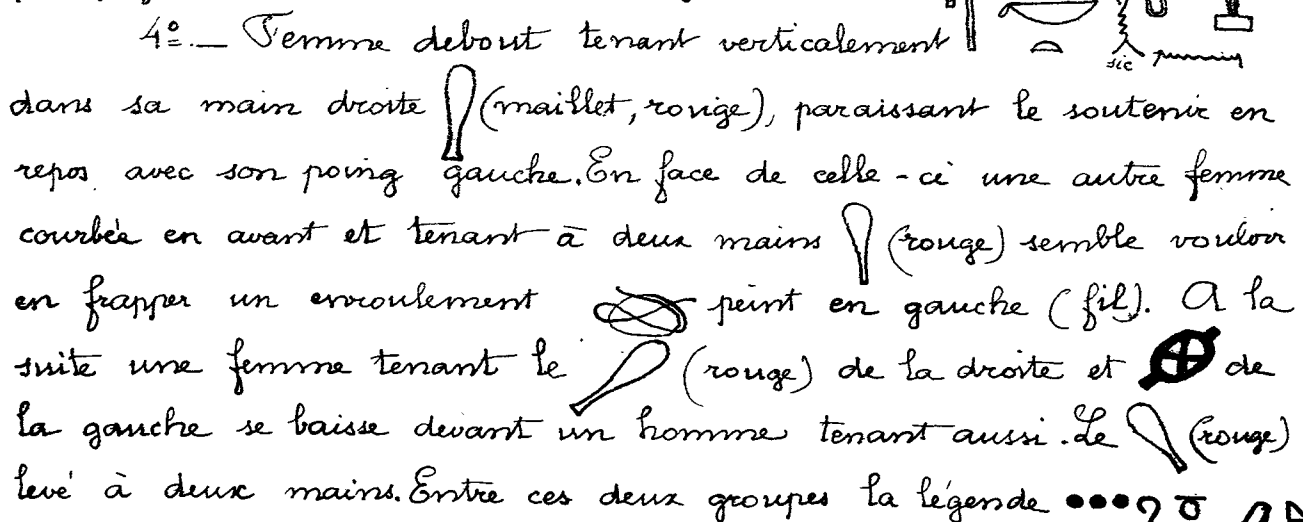 4º._ Femme debout tenant verticalement
sic
dans sa main droite (maillet, rouge), paraissant le soutenir en
repos avec son poing gauche. En face de celle-ci une autre femme
courbée en avant et tenant à deux mains (rouge) semble vouloir
en frapper un enroulement peint en gauche (fil). A la
suite une femme tenant le (rouge) de la droite et de
la gauche se baisse devant un homme tenant aussi. Le (rouge)
levé à deux mains. Entre ces deux groupes la légende